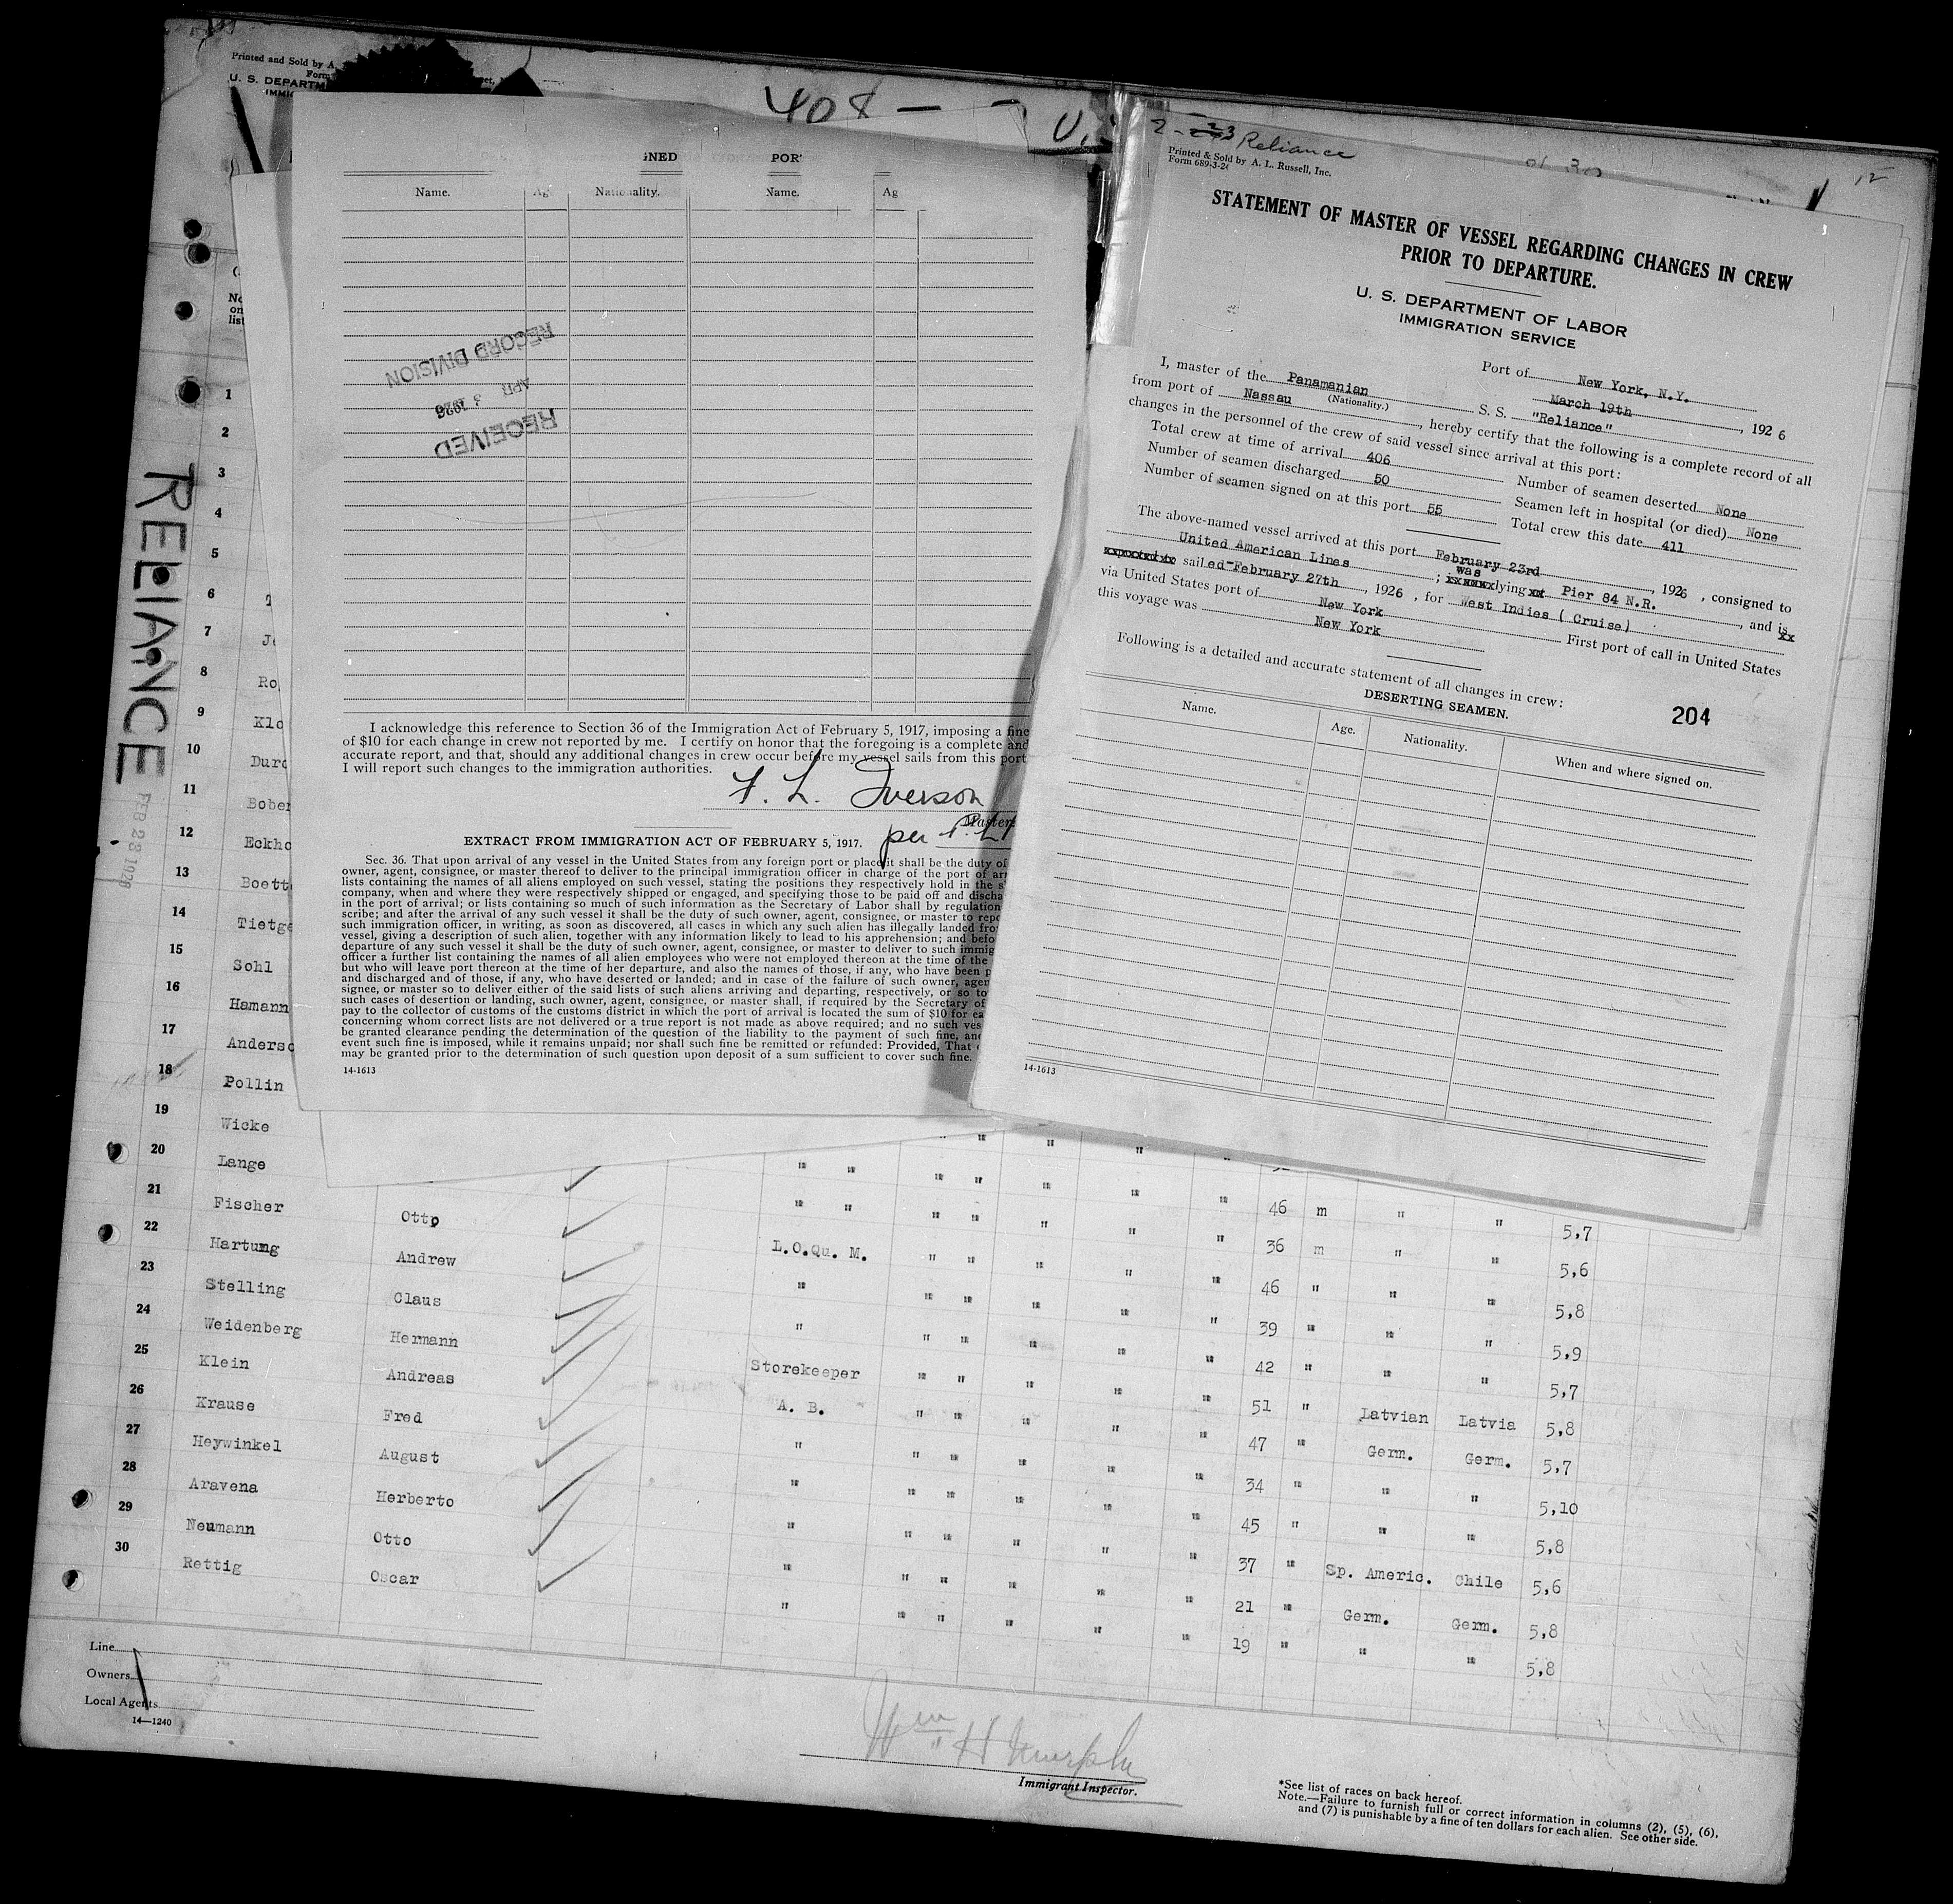 Printed and Sold by A.
Form
U. S. DEPARTM
IMMIG
408 — -
No
on
list
RELIANCE
FEB 23 1926
Name. Ag Nationality. Name. Ag
RECORD DIVISION
APR 3 1926
RECEIVED
I acknowledge this reference to Section 36 of the Immigration Act of February 5, 1917, imposing a fine
of $10 for each change in crew not reported by me. I certify on honor that the foregoing is a complete and
accurate report, and that, should any additional changes in crew occur before my vessel sails from this port
I will report such changes to the immigration authorities.
F. L. Iverson
Master
per
EXTRACT FROM IMMIGRATION ACT OF FEBRUARY 5, 1917.
Sec. 36. That upon arrival of any vessel in the United States from any foreign port or place it shall be the duty of
owner, agent, consignee, or master thereof to deliver to the principal immigration officer in charge of the port of arr
lists containing the names of all aliens employed on such vessel, stating the positions they respectively hold in the s
company, when and where they were respectively shipped or engaged, and specifying those to be paid off and discha
in the port of arrival; or lists containing so much of such information as the Secretary of Labor shall by regulation
scribe; and after the arrival of any such vessel it shall be the duty of such owner, agent, consignee, or master to repo
such immigration officer, in writing, as soon as discovered, all cases in which any such alien has illegally landed fro
vessel, giving a description of such alien, together with any information likely to lead to his apprehension; and befo
departure of any such vessel it shall be the duty of such owner, agent, consignee, or master to deliver to such immig
officer a further list containing the names of all alien employees who were not employed thereon at the time of the
but who will leave port thereon at the time of her departure, and also the names of those, if any, who have been p
and discharged and of those, if any, who have deserted or landed; and in case of the failure of such owner, agen
signee, or master so to deliver either of the said lists of such aliens arriving and departing, respectively, or so to
such cases of desertion or landing, such owner, agent, consignee, or master shall, if required by the Secretary of
pay to the collector of customs of the customs district in which the port of arrival is located the sum of $10 for ea
concerning whom correct lists are not delivered or a true report is not made as above required; and no such ves
be granted clearance pending the determination of the question of the liability to the payment of such fine, and
event such fine is imposed, while it remains unpaid; nor shall such fine be remitted or refunded: Provided, That
may be granted prior to the determination of such question upon deposit of a sum sufficient to cover such fine.
14-1613
Reliance
Printed & Sold by A. L. Russell, Inc.
Form 689-3-24
12
STATEMENT OF MASTER OF VESSEL REGARDING CHANGES IN CREW
PRIOR TO DEPARTURE.
U. S. DEPARTMENT OF LABOR
IMMIGRATION SERVICE
Port of New York, N.Y.
March 19th, 1926
I, master of the Panamanian S. S. "Reliance"
(Nationality.)
from port of Nassau, hereby certify that the following is a complete record of all
changes in the personnel of the crew of said vessel since arrival at this port:
Total crew at time of arrival 406 Number of seamen deserted None
Number of seamen discharged 50 Seamen left in hospital (or died) None
Number of seamen signed on at this port 55 Total crew this date 411
The above-named vessel arrived at this port February 23rd, 1926, consigned to
United American Lines; was lying Pier 84 N.R., and is
sailed February 27th, 1926, for West Indies (Cruise)
via United States port of New York First port of call in United States
this voyage was New York
Following is a detailed and accurate statement of all changes in crew:
DESERTING SEAMEN.
204
Name. Age. Nationality. When and where signed on.
14-1613
1
2
3
4
5
6 T
7 Je
8 Ro
9 Klo
10 Durc
11 Bober
12 Eckho
13 Boett
14 Tietge
15 Sohl
16 Hamann
17 Anderso
18 Pollin
19 Wicke
20 Lange " " " " " " " 46 m " " 5,7
21 Fischer Otto " " " " " " " 36 m " " 5,6
22 Hartung Andrew L.O.Qu. M. " " " " " 46 " " " 5,8
23 Stelling Claus " " " " " " 39 " " " 5,9
24 Weidenberg Hermann " " " " " " 42 " " " 5,7
25 Klein Andreas Storekeeper " " " " " 51 " Latvian Latvia 5,8
26 Krause Fred A. B. " " " " " 47 " Germ. Germ. 5,7
27 Heywinkel August " " " " " " 34 " " " 5,10
28 Aravena Herberto " " " " " " 45 " " " 5,8
29 Neumann Otto " " " " " " 37 " Sp. Americ. Chile 5,6
30 Rettig Oscar " " " " " " 21 " Germ. Germ. 5,8
" " " " " " 19 " " " 5,8
Line
Owners
Local Agents
14—1240
Wm H Murphy
Immigrant Inspector.
*See list of races on back hereof.
Note.—Failure to furnish full or correct information in columns (2), (5), (6),
and (7) is punishable by a fine of ten dollars for each alien. See other side.